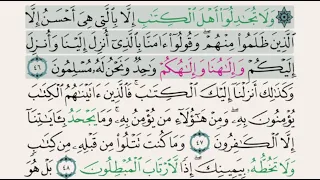 ۞ وَلَا تُجَٰدِلُوٓا۟ أَهْلَ ٱلْكِتَٰبِ إِلَّا بِٱلَّتِى هِىَ أَحْسَنُ إِلَّا
ٱلَّذِينَ ظَلَمُوا۟ مِنْهُمْ ۖ وَقُولُوٓا۟ ءَامَنَّا بِٱلَّذِىٓ أُنزِلَ إِلَيْنَا وَأُنزِلَ
إِلَيْكُمْ وَإِلَٰهُنَا وَإِلَٰهُكُمْ وَٰحِدٌ وَنَحْنُ لَهُۥ مُسْلِمُونَ ٤٦
وَكَذَٰلِكَ أَنزَلْنَآ إِلَيْكَ ٱلْكِتَٰبَ ۚ فَٱلَّذِينَ ءَاتَيْنَٰهُمُ ٱلْكِتَٰبَ
يُؤْمِنُونَ بِهِۦ ۖ وَمِنْ هَٰٓؤُلَآءِ مَن يُؤْمِنُ بِهِۦ ۚ وَمَا يَجْحَدُ بِـَٔايَٰتِنَآ
إِلَّا ٱلْكَٰفِرُونَ ٤٧ وَمَا كُنتَ تَتْلُوا۟ مِن قَبْلِهِۦ مِن كِتَٰبٍ
وَلَا تَخُطُّهُۥ بِيَمِينِكَ ۖ إِذًا لَّٱرْتَابَ ٱلْمُبْطِلُونَ ٤٨ بَلْ هُوَ